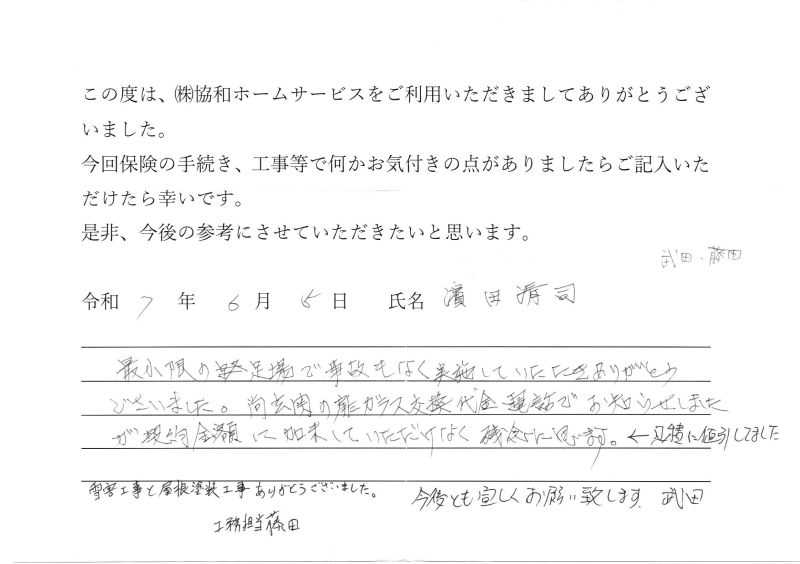 この度は、㈱協和ホームサービスをご利用いただきましてありがとうござ
いました。
今回保険の手続き、工事等で何かお気付きの点がありましたらご記入いた
だけたら幸いです。
是非、今後の参考にさせていただきたいと思います。
武田・藤田
令和 7 年 6 月 15 日 氏名 濱田清司
最小限の 足場で事故もなく実施していただきありがとう
ございました。尚玄関の扉ガラス交換代金電話でお知らせしました
が契約金額に加味していただけなく残念に思う。←見積に値引してました
雪害工事と屋根塗装工事ありがとうございました。 今後とも宜しくお願い致します 武田
工務担当藤田